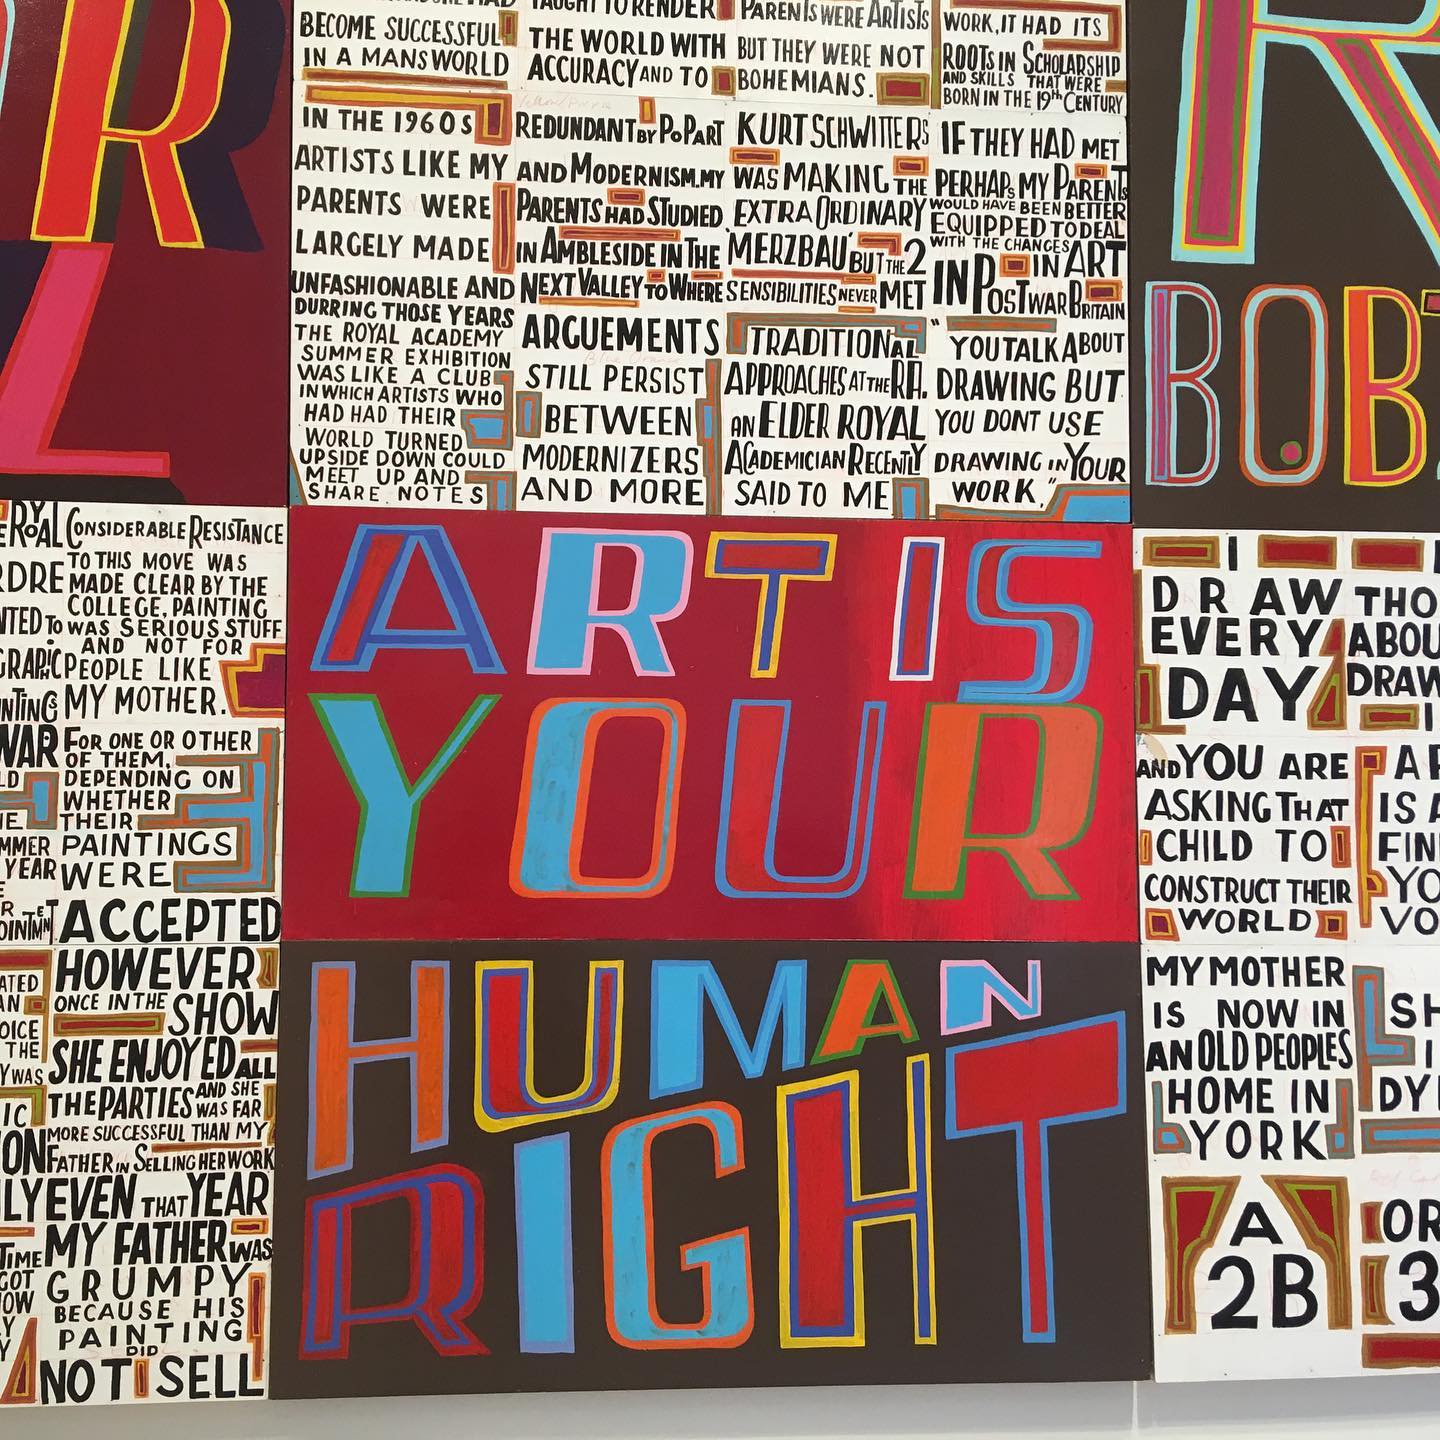 BECOME SUCCESSFUL
IN A MANS WORLD
IN THE 1960S
ARTISTS LIKE MY
PARENTS WERE
LARGELY MADE
UNFASHIONABLE AND
DURRING THOSE YEARS
THE ROYAL ACADEMY
SUMMER EXHIBITION
WAS LIKE A CLUB
IN WHICH ARTISTS WHO
HAD HAD THEIR
WORLD TURNED
UPSIDE DOWN COULD
MEET UP AND
SHARE NOTES
TAUGHT TO RENDER
THE WORLD WITH
ACCURACY AND TO
REDUNDANT BY POPART
AND MODERNISM. MY
PARENTS HAD STUDIED
IN AMBLESIDE IN THE
NEXT VALLEY TO WHERE
ARGUEMENTS
STILL PERSIST
BETWEEN
MODERNIZERS
AND MORE
PARENTS WERE ARTISTS
BUT THEY WERE NOT
BOHEMIANS.
KURT SCHWITTERS
WAS MAKING THE
EXTRAORDINARY
'MERZBAU' BUT THE 2
SENSIBILITIES NEVER MET
TRADITIONAL
APPROACHES AT THE RA.
AN ELDER ROYAL
ACADEMICIAN RECENTLY
SAID TO ME
WORK, IT HAD ITS
ROOTS IN SCHOLARSHIP
AND SKILLS THAT WERE
BORN IN THE 19th CENTURY
IF THEY HAD MET
PERHAPS MY PARENTS
WOULD HAVE BEEN BETTER
EQUIPPED TO DEAL
WITH THE CHANGES
IN ART
IN POST WAR BRITAIN
"YOU TALK ABOUT
DRAWING BUT
YOU DONT USE
DRAWING IN YOUR
WORK,"
R
L
R
BOB
CONSIDERABLE RESISTANCE
TO THIS MOVE WAS
MADE CLEAR BY THE
COLLEGE, PAINTING
WAS SERIOUS STUFF
AND NOT FOR
PEOPLE LIKE
MY MOTHER.
FOR ONE OR OTHER
OF THEM,
DEPENDING ON
WHETHER
THEIR
PAINTINGS
WERE
ACCEPTED
HOWEVER
ONCE IN THE SHOW
SHE ENJOYED ALL
THE PARTIES AND SHE
WAS FAR
MORE SUCCESSFUL THAN MY
FATHER IN SELLING HER WORK
EVEN THAT YEAR
MY FATHER WAS
GRUMPY
BECAUSE HIS
PAINTING
DID
NOT SELL
ART IS
YOUR
HUMAN
RIGHT
I
DRAW
EVERY
DAY
AND YOU ARE
ASKING THAT
CHILD TO
CONSTRUCT THEIR
WORLD
MY MOTHER
IS NOW IN
AN OLD PEOPLES
HOME IN
YORK
A
2B
OR
3